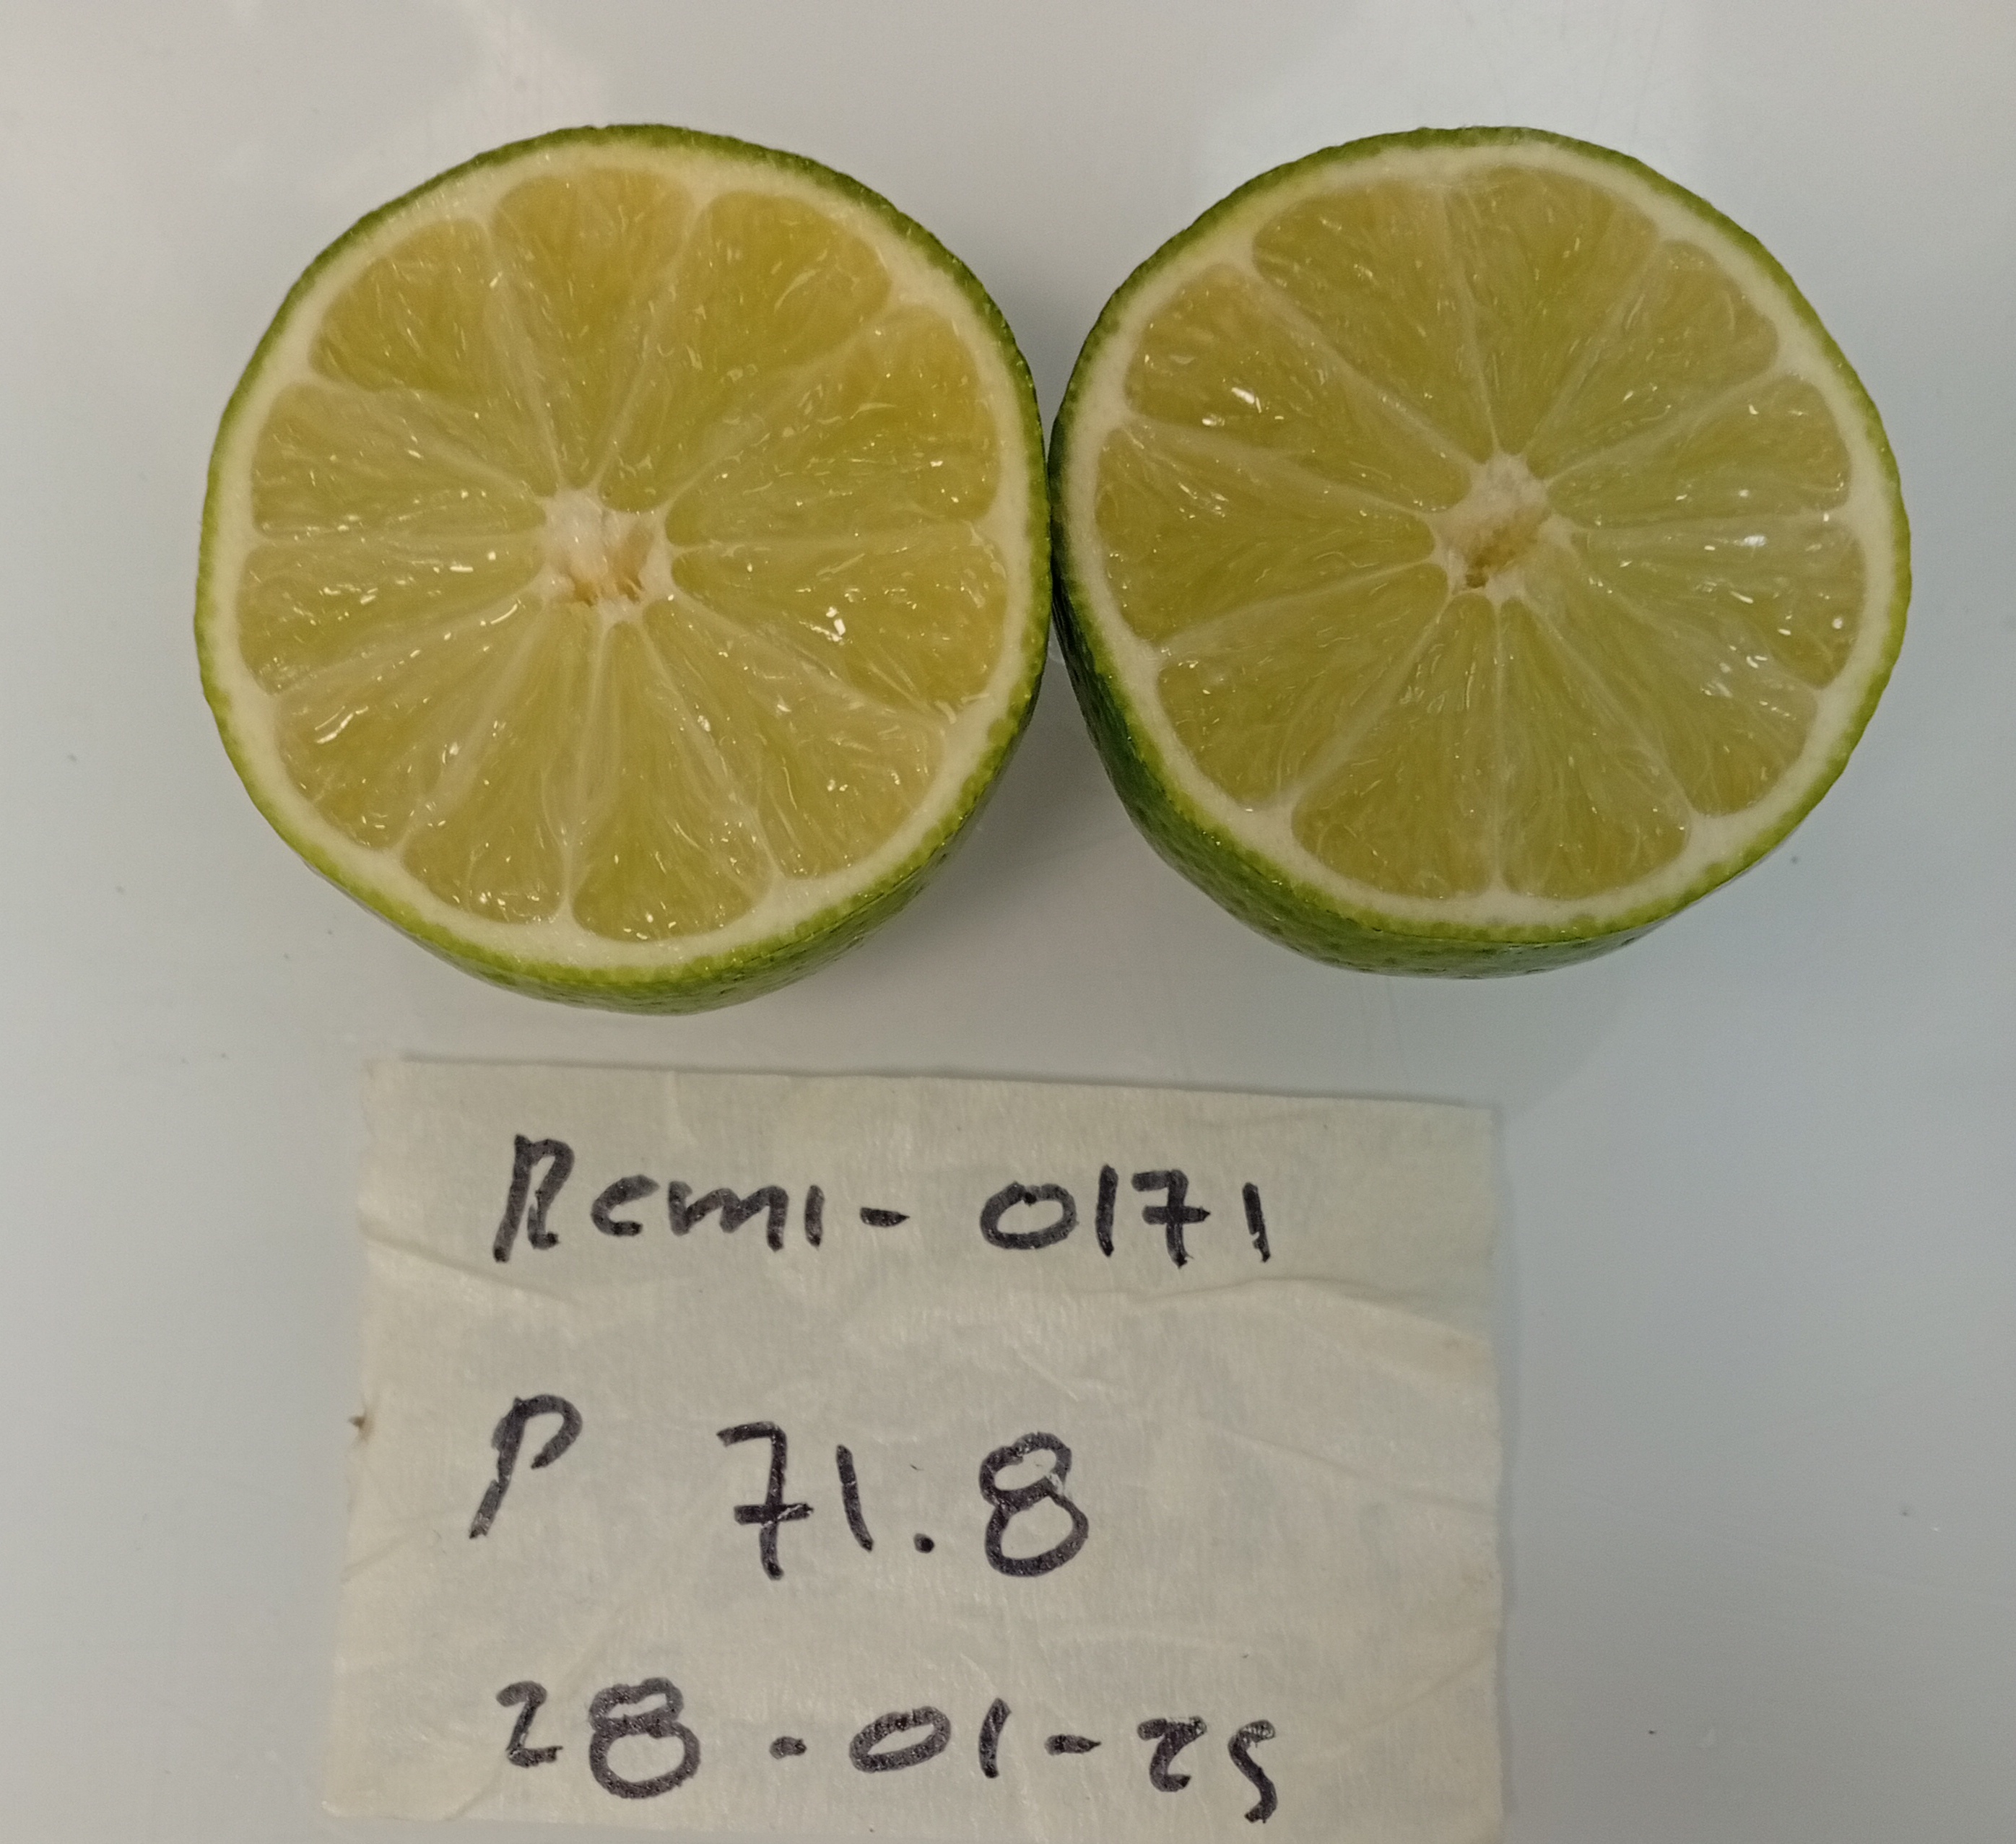 Remi - 0171
P 71.8
28-01-25